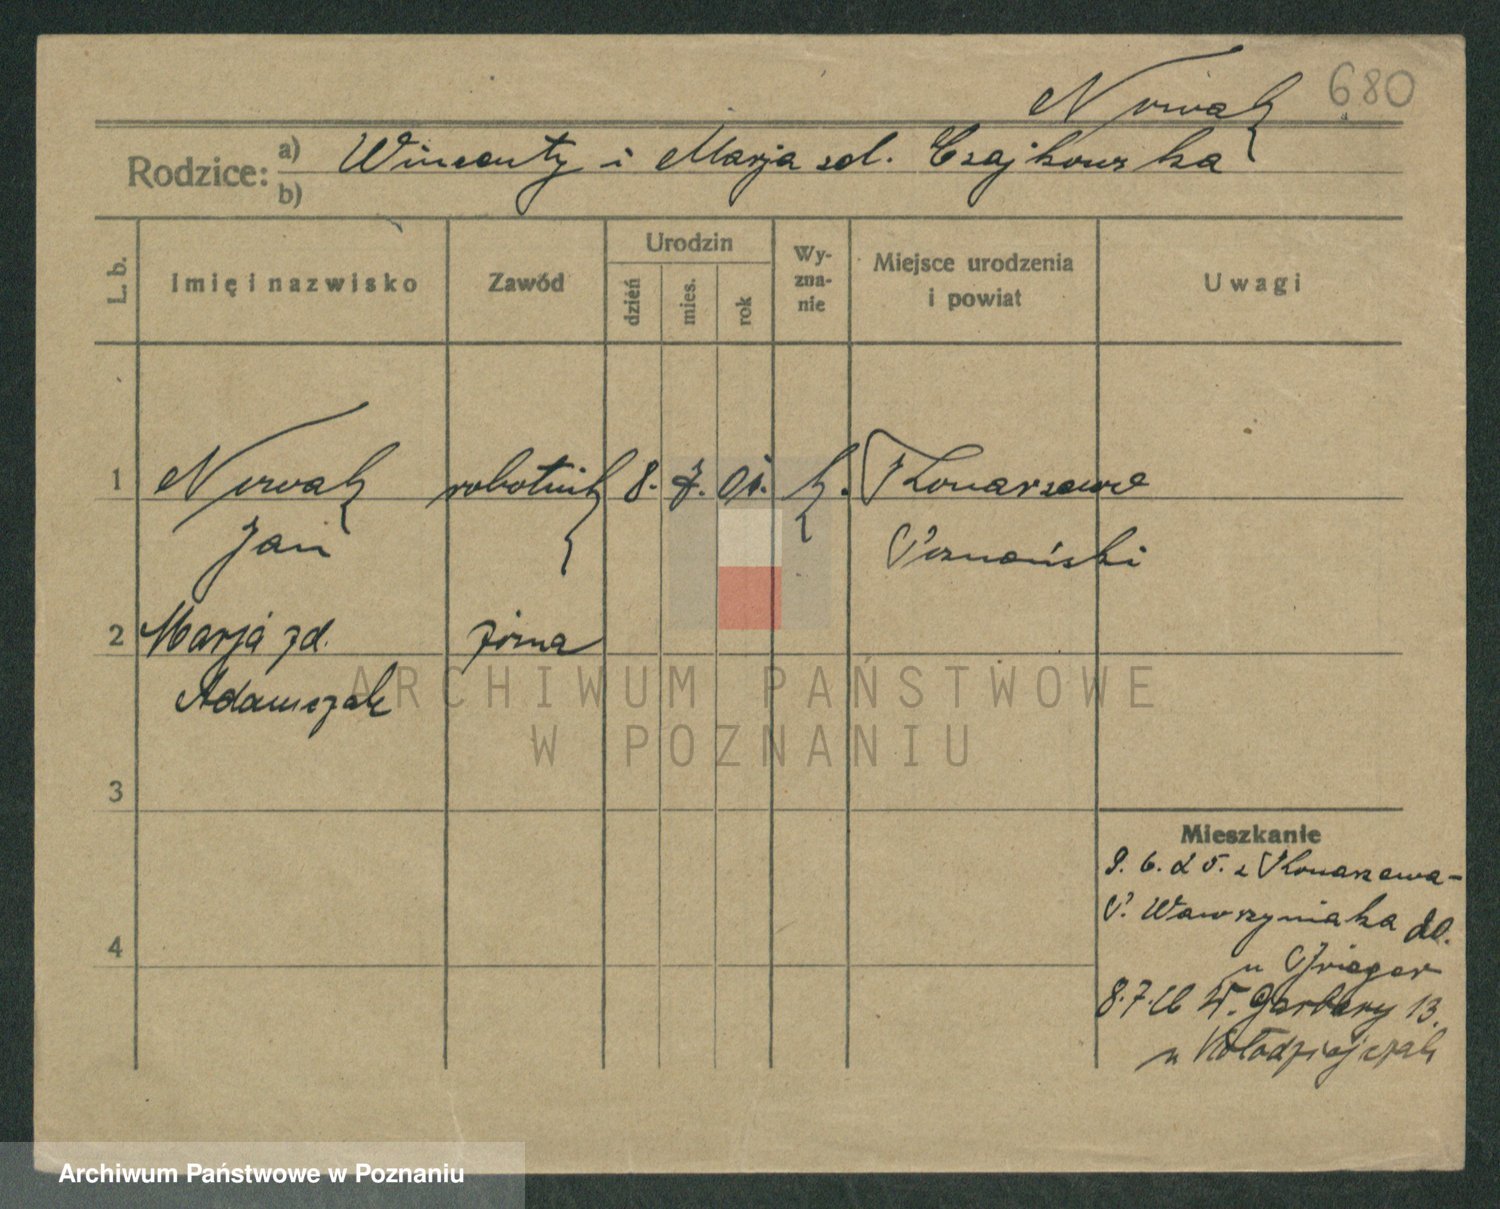 Nowak 680
Rodzice: a) b) Wincenty i Marja zd. Czajkowska
L. b. Imię i nazwisko Zawód Urodzin dzień mies. rok Wy-zna-nie Miejsce urodzenia i powiat Uwagi
1 Nowak robotnik 8. 7. 01. k. Konarzewo
Jan Poznański
2 Marja zd. żona
Adamczak
3
4
Mieszkanie
9. 6. 25. z Konarzewa-
P. Wawrzyniaka 20.
u
8.7.26 W. Garbary 13.
u Kołodziejczak
ARCHIWUM PAŃSTWOWE
W POZNANIU
Archiwum Państwowe w Poznaniu